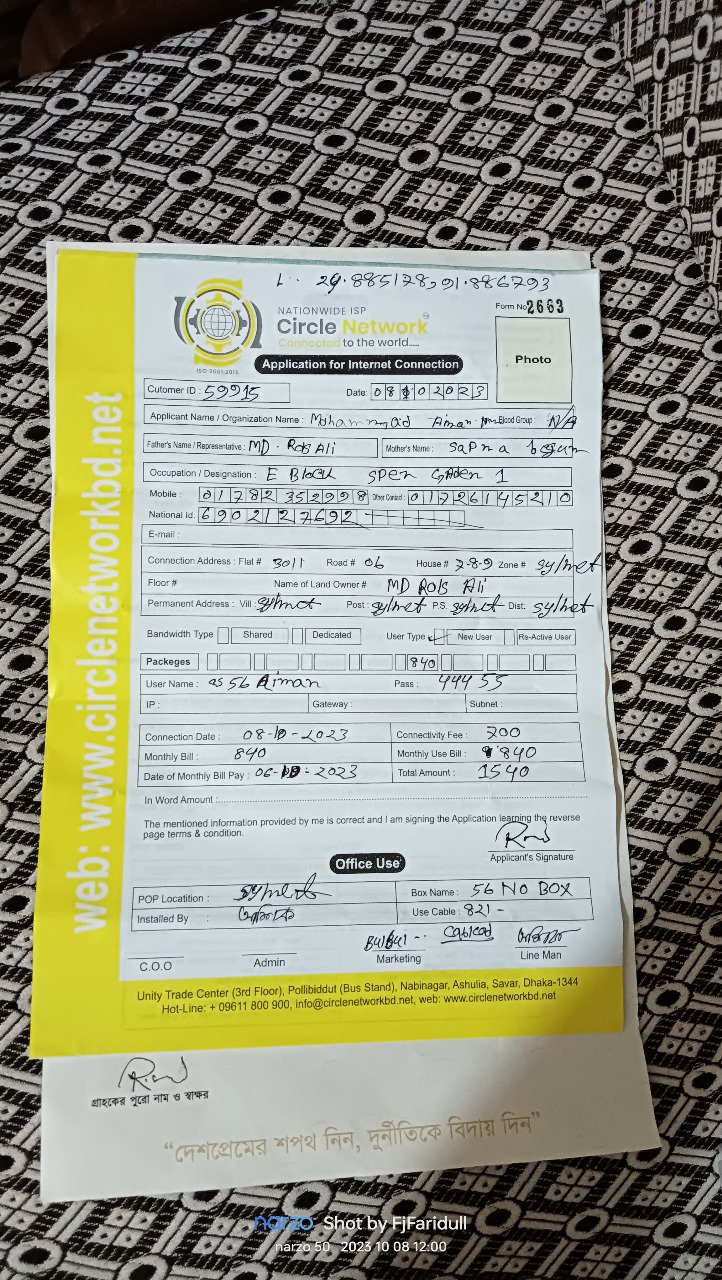 L.. 24.885178,91.886793
NATIONWIDE ISP
Form No 2663
Circle Network
Connected to the world.....
ISO 9001:2015
Application for Internet Connection
Photo
Cutomer ID : 59915 Date: 08102023
Applicant Name / Organization Name : Mohammad Aiman Blood Group: N/A
Father's Name / Representative : MD. Rois Ali Mother's Name : Sapna begum
Occupation / Designation : E Block
Mobile : 01782352998 Other Contact : 01726145210
National Id: 6902127692
E-mail :
Connection Address : Flat # 3011 Road # 06 House # 7-8-9 Zone # sylhet
Floor # Name of Land Owner # MD Rois Ali
Permanent Address : Vill sylhet Post : sylhet P.S. sylhet Dist: sylhet
Bandwidth Type Shared Dedicated User Type New User Re-Active User
Packeges 840
User Name : as56 Aiman Pass : 44455
IP : Gateway : Subnet :
Connection Date : 08-10-2023 Connectivity Fee : 700
Monthly Bill : 840 Monthly Use Bill : 840
Date of Monthly Bill Pay : 06-10-2023 Total Amount : 1540
In Word Amount :
The mentioned information provided by me is correct and I am signing the Application learning the reverse
page terms & condition.
Applicant's Signature
Office Use
POP Locatition : sylhet Box Name : 56 NO BOX
Installed By : Use Cable : 821 -
C.O.O Admin Marketing Line Man
Unity Trade Center (3rd Floor), Pollibiddut (Bus Stand), Nabinagar, Ashulia, Savar, Dhaka-1344
Hot-Line: + 09611 800 900, info@circlenetworkbd.net, web: www.circlenetworkbd.net
web: www.circlenetworkbd.net
গ্রাহকের পুরো নাম ও স্বাক্ষর
“দেশপ্রেমের শপথ নিন, দুর্নীতিকে বিদায় দিন”
narzo Shot by FjFaridull
narzo 50 2023 10 08 12:00